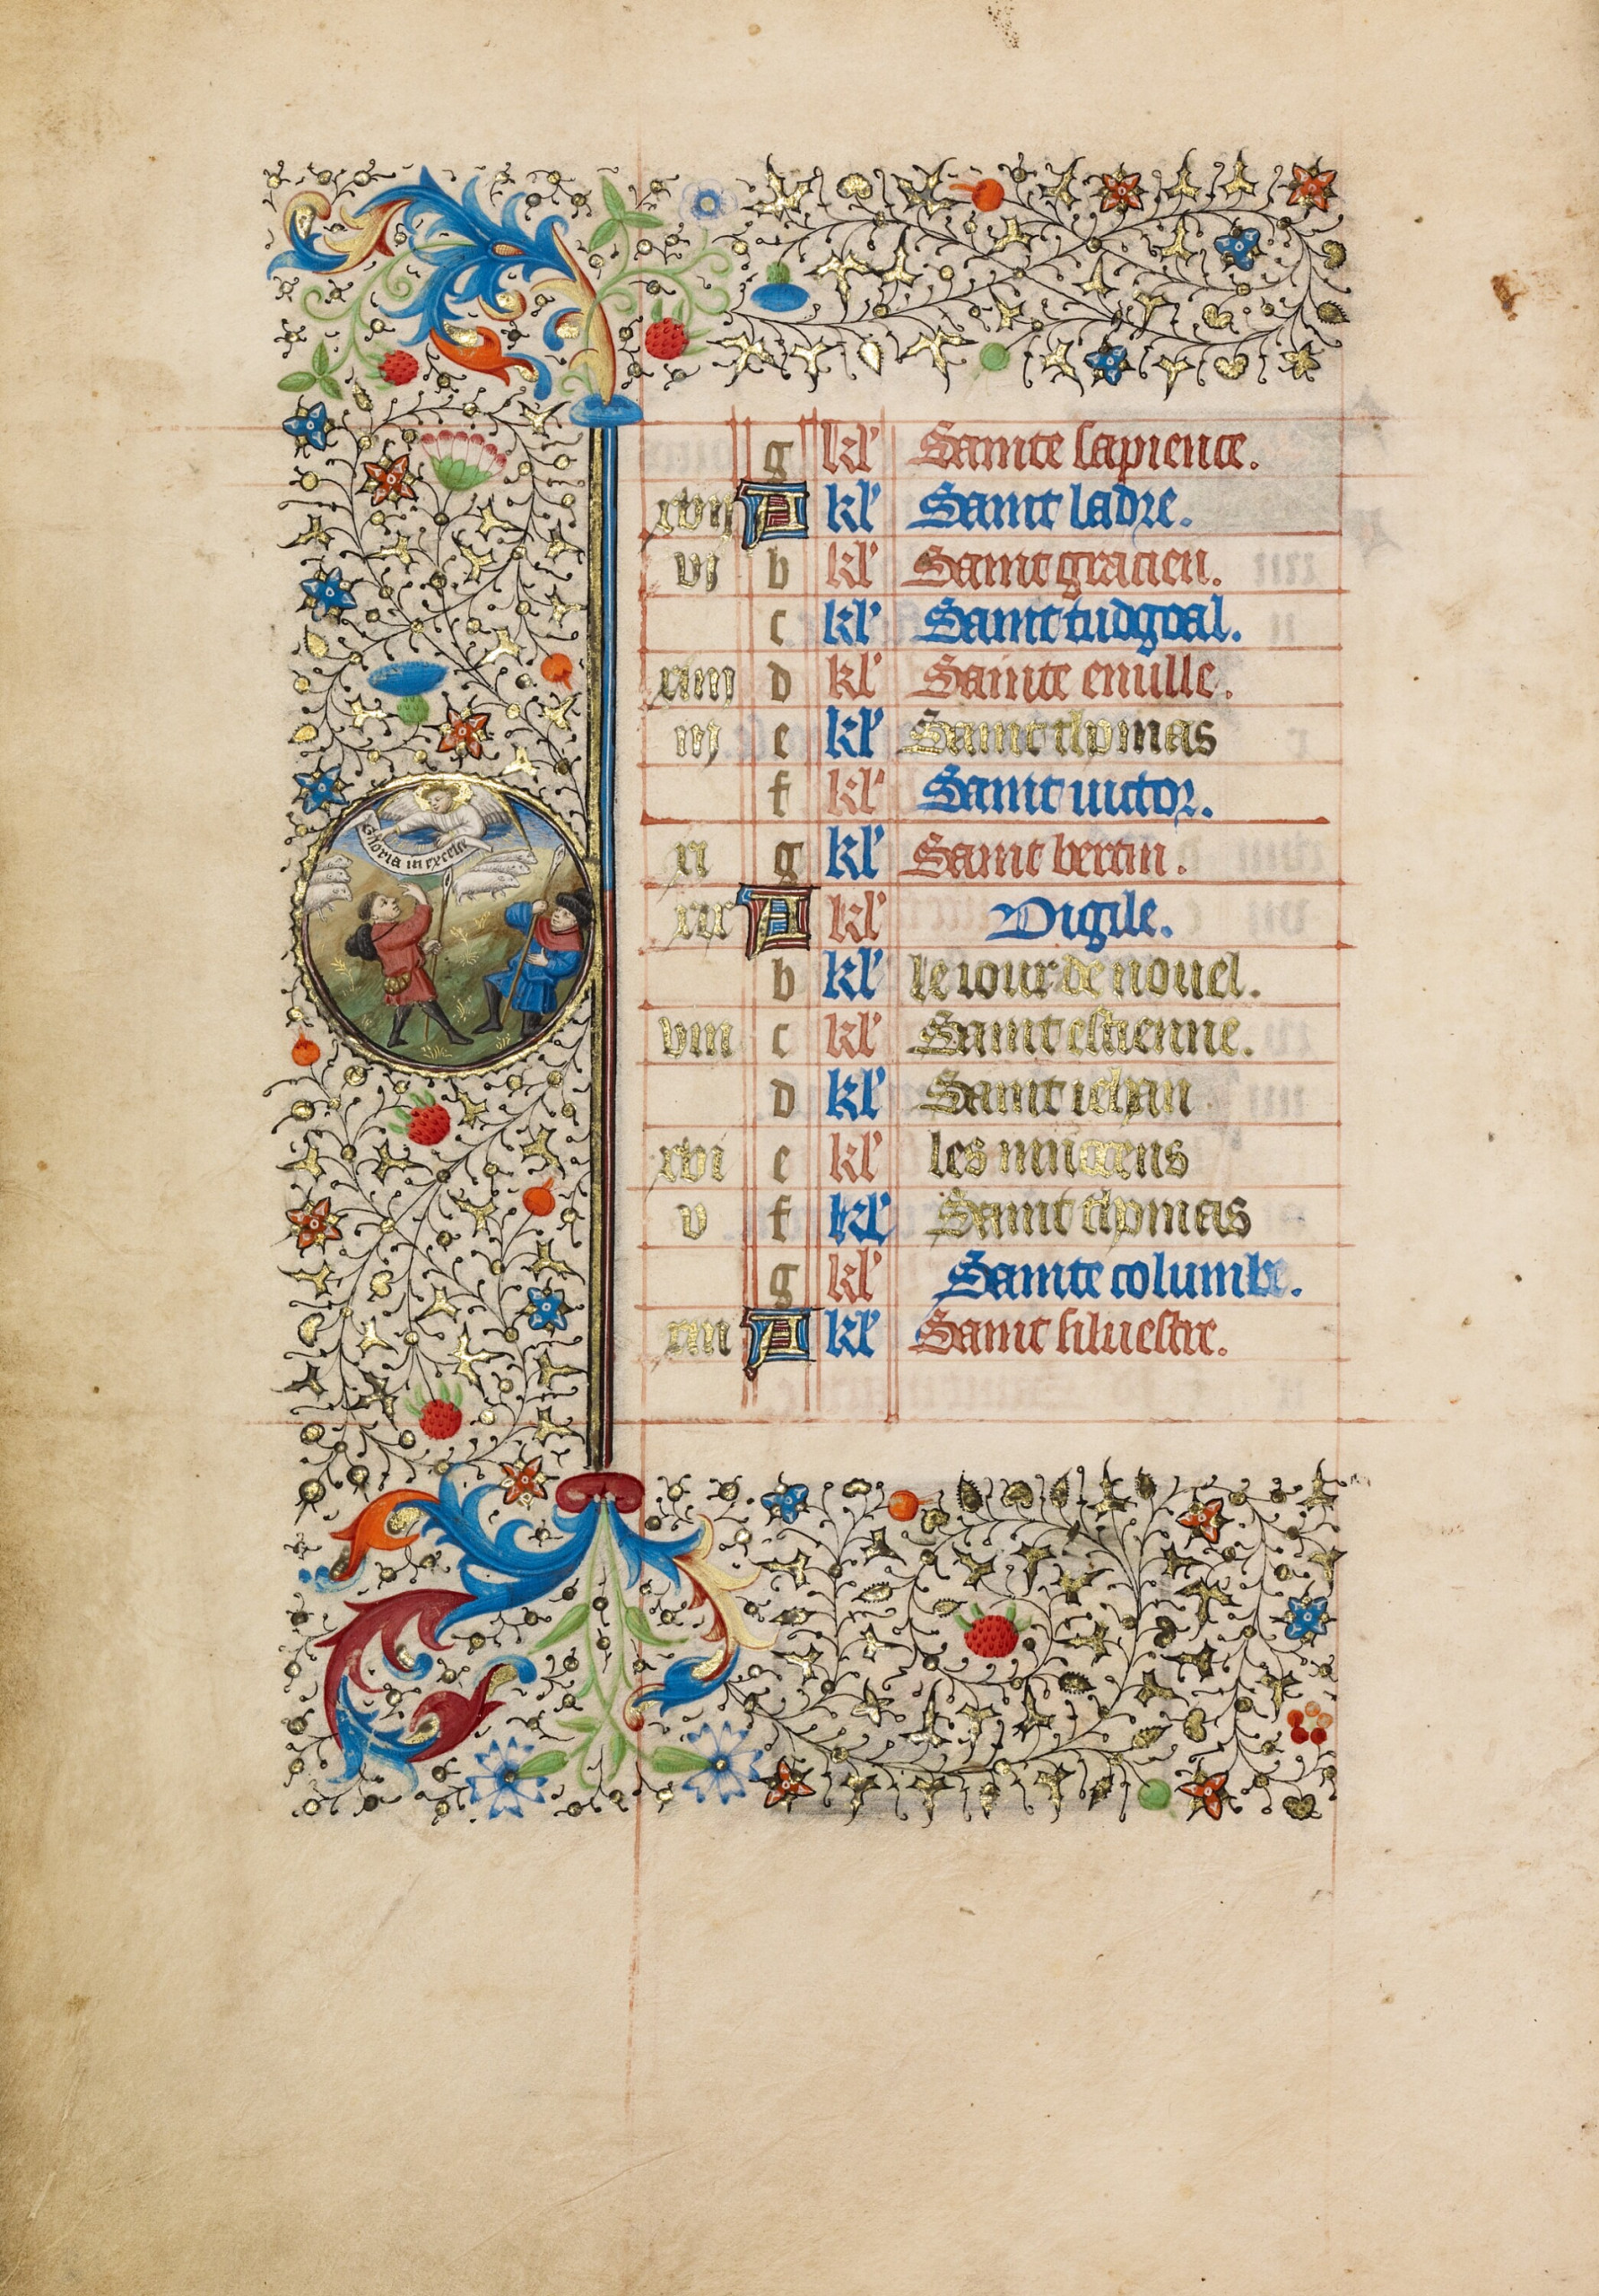 Gloria in excelsis
g kl' Sainte sapience.
xvij A kl' Saint ladre.
vj b kl' Saint gracien.
c kl' Saint tudgoal.
xiiij d kl' Sainte emille.
iij e kl' Saint thomas
f kl' Saint victor.
xi g kl' Saint bertin.
xix A kl' Vigile.
b kl' le iour de nouel.
viii c kl' Saint estienne.
d kl' Saint iehan
xvi e kl' les innocens
v f kl' Saint thomas
g kl' Sainte columbe.
xiii A kl' Saint siluestre.